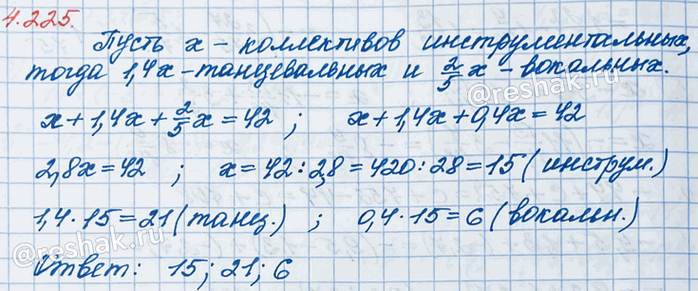 4.225.
Пусть x - коллективов инструментальных,
тогда 1,4x - танцевальных и 2/5 x - вокальных.
x + 1,4x + 2/5 x = 42 ; x + 1,4x + 0,4x = 42
2,8x = 42 ; x = 42 : 2,8 = 420 : 28 = 15 (инструм.)
1,4 · 15 = 21 (танц.) ; 0,4 · 15 = 6 (вокальн.)
Ответ: 15; 21; 6
@reshak.ru
@reshak.ru